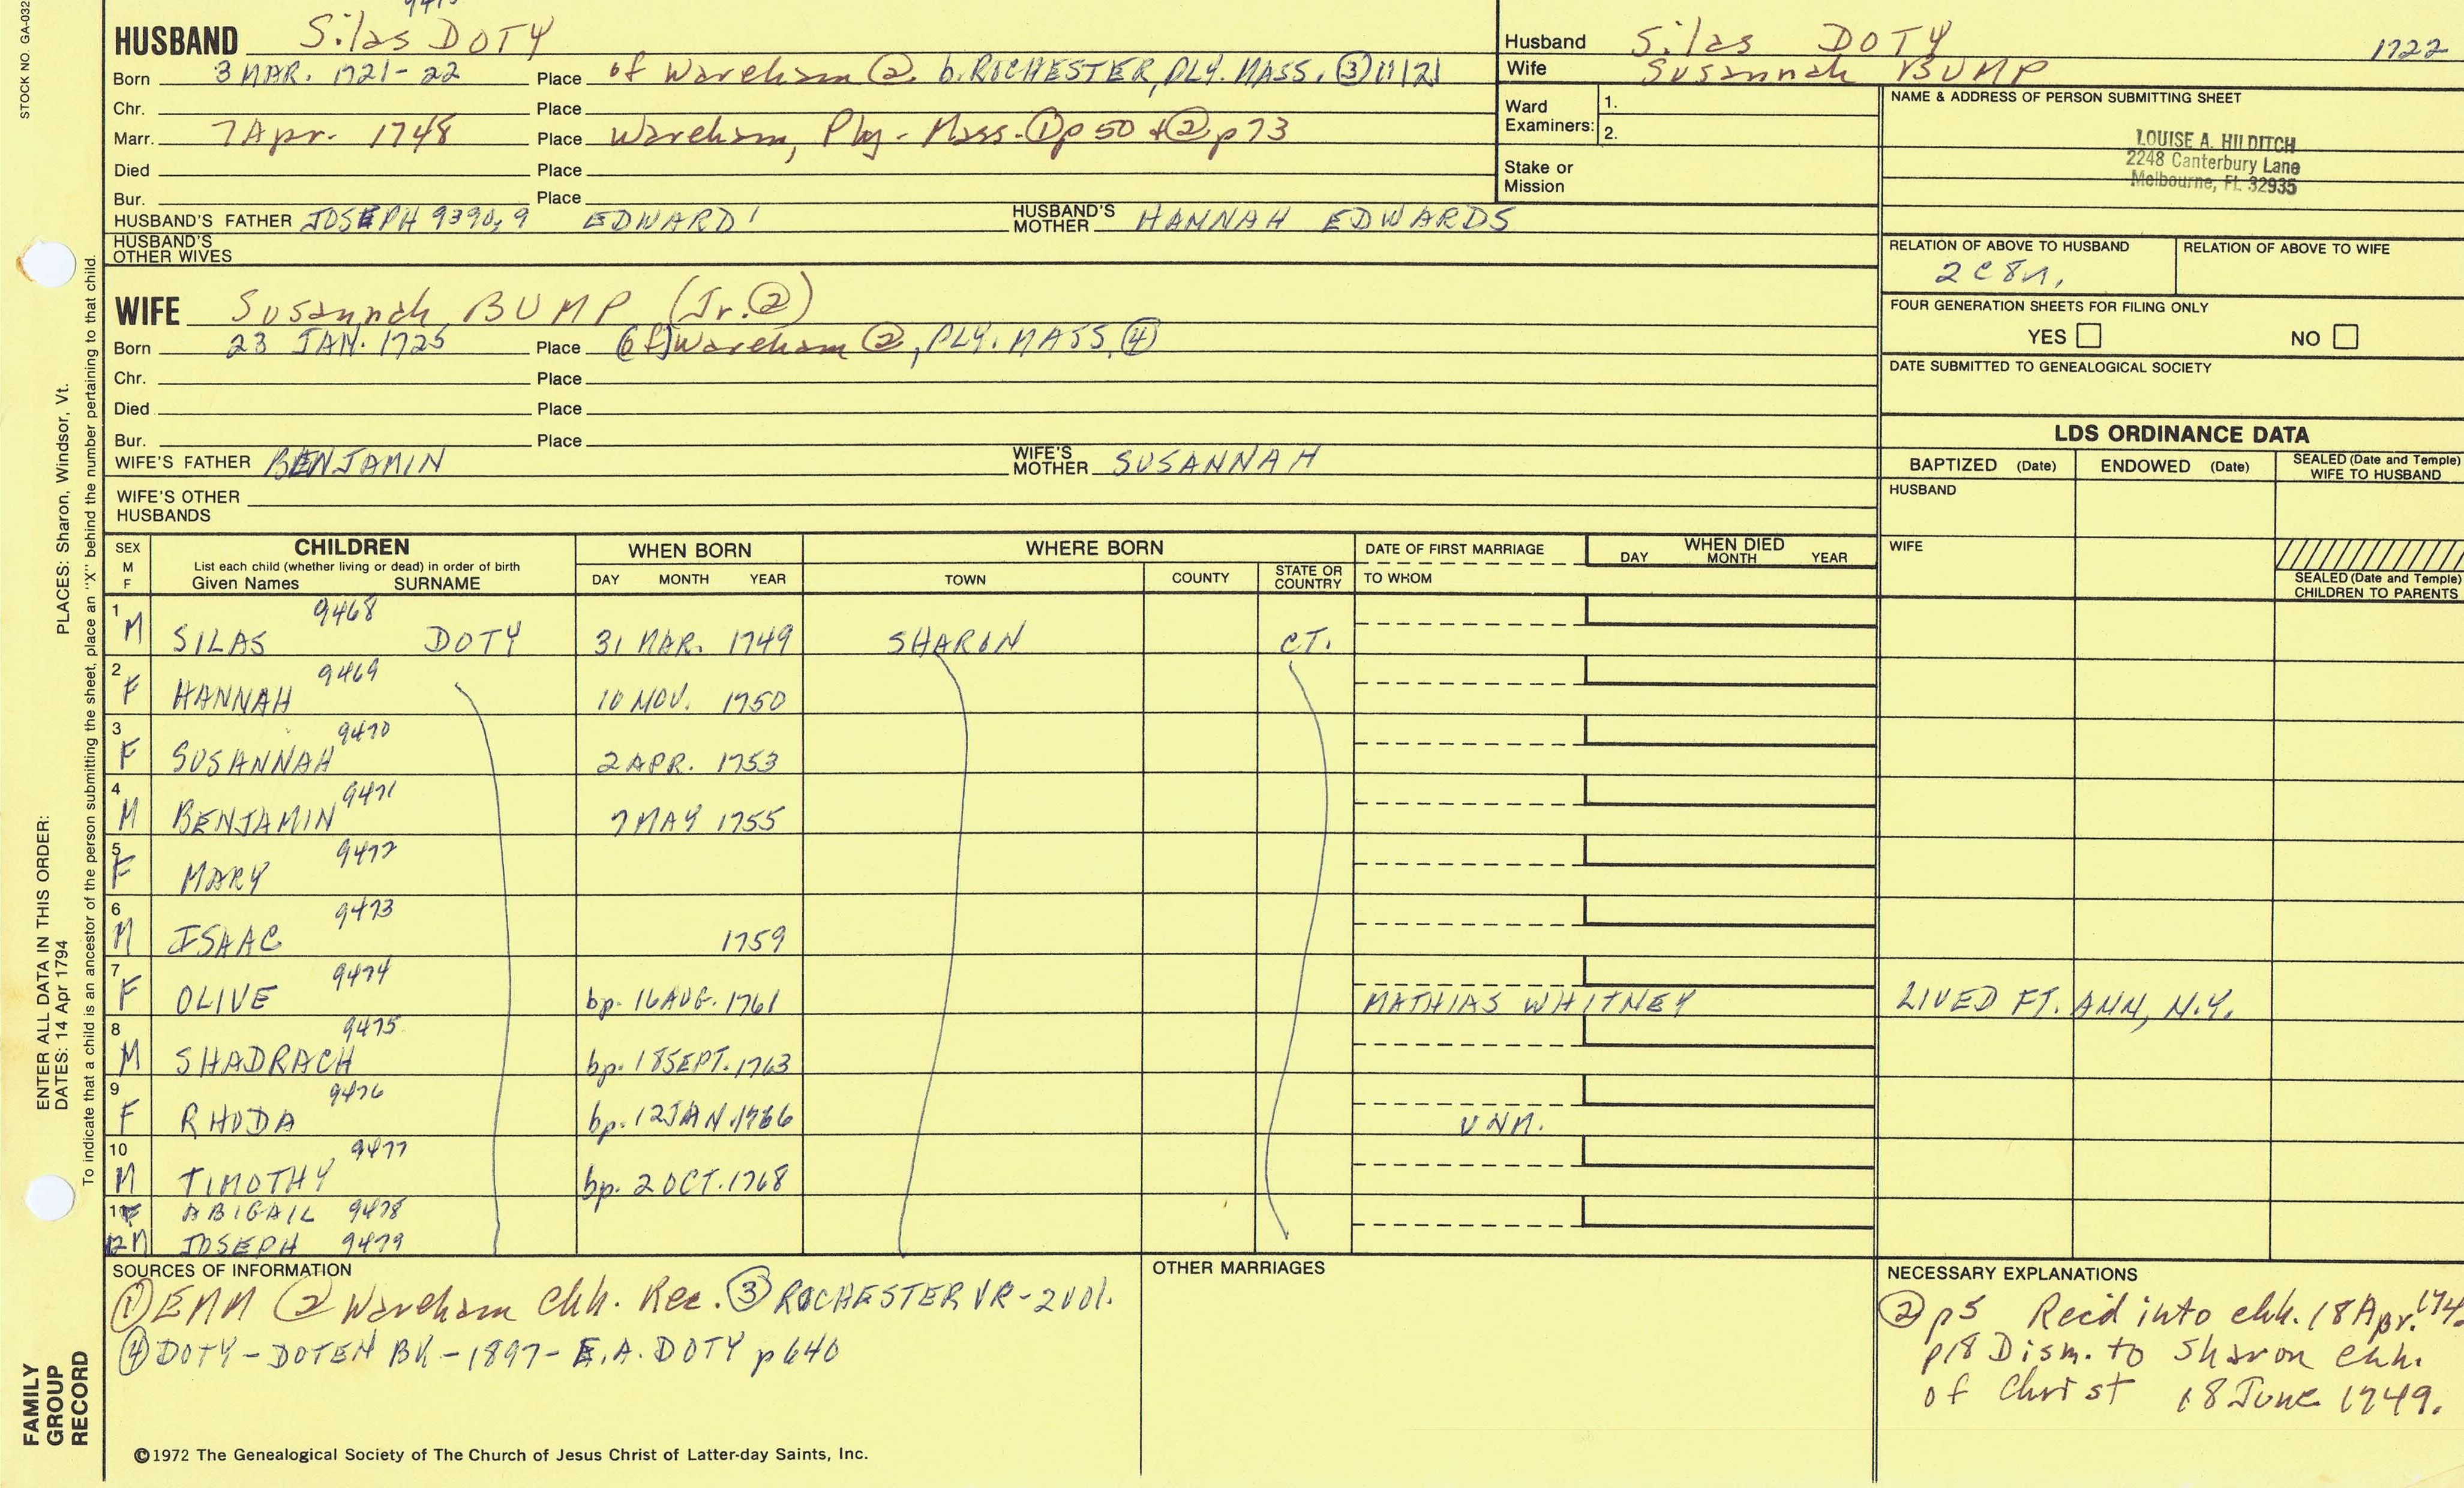 STOCK NO. GA-032
PLACES: Sharon, Windsor, Vt.
ENTER ALL DATA IN THIS ORDER:
DATES: 14 Apr 1794
To indicate that a child is an ancestor of the person submitting the sheet, place an "X" behind the number pertaining to that child.
FAMILY GROUP RECORD
HUSBAND Silas DOTY
Born 3 MAR. 1721-22 Place of Wareham ② b. ROCHESTER, PLY. MASS. ③
Chr. Place
Marr. 7 Apr. 1748 Place Wareham, Ply - Mass. ① p 50 + ② p 73
Died Place
Bur. Place
HUSBAND'S FATHER JOSEPH 9390,9 EDWARD¹ HUSBAND'S MOTHER HANNAH EDWARDS
HUSBAND'S OTHER WIVES
WIFE Susannah BUMP (Jr. ②)
Born 23 JAN. 1725 Place (of) Wareham ②, PLY. MASS. ④
Chr. Place
Died Place
Bur. Place
WIFE'S FATHER BENJAMIN WIFE'S MOTHER SUSANNAH
WIFE'S OTHER HUSBANDS
Husband Silas DOTY 1722
Wife Susannah BUMP
Ward Examiners: 1.
2.
Stake or Mission
NAME & ADDRESS OF PERSON SUBMITTING SHEET
LOUISE A. HILDITCH
2248 Canterbury Lane
Melbourne, FL 32935
RELATION OF ABOVE TO HUSBAND RELATION OF ABOVE TO WIFE
2C8n.
FOUR GENERATION SHEETS FOR FILING ONLY
YES NO
DATE SUBMITTED TO GENEALOGICAL SOCIETY
LDS ORDINANCE DATA
BAPTIZED (Date) ENDOWED (Date) SEALED (Date and Temple) WIFE TO HUSBAND
HUSBAND
WIFE
SEALED (Date and Temple) CHILDREN TO PARENTS
SEX M F CHILDREN WHEN BORN WHERE BORN DATE OF FIRST MARRIAGE WHEN DIED
List each child (whether living or dead) in order of birth
Given Names SURNAME DAY MONTH YEAR TOWN COUNTY STATE OR COUNTRY TO WHOM DAY MONTH YEAR
1 M SILAS 9468 DOTY 31 MAR. 1749 SHARON CT.
2 F HANNAH 9469 10 NOV. 1750
3 F SUSANNAH 9470 2 APR. 1753
4 M BENJAMIN 9471 7 MAY 1755
5 F MARY 9472
6 M ISAAC 9473 1759
7 F OLIVE 9474 bp. 16 AUG. 1761 MATHIAS WHITNEY LIVED FT. ANN, N.Y.
8 M SHADRACH 9475 bp. 18 SEPT. 1763
9 F RHODA 9476 bp. 12 JAN. 1766 UNM.
10 M TIMOTHY 9477 bp. 2 OCT. 1768
11 F ABIGAIL 9478
12 M JOSEPH 9479
SOURCES OF INFORMATION
① EMM ② Wareham Chh. Rec. ③ ROCHESTER VR - 2 Vol.
④ DOTY - DOTEN BK - 1897 - E.A. DOTY p 640
OTHER MARRIAGES
NECESSARY EXPLANATIONS
② p5 Rec'd into chh. 18 Apr.
p18 Dism. to Sharon chh.
of Christ 18 June 1749.
©1972 The Genealogical Society of The Church of Jesus Christ of Latter-day Saints, Inc.